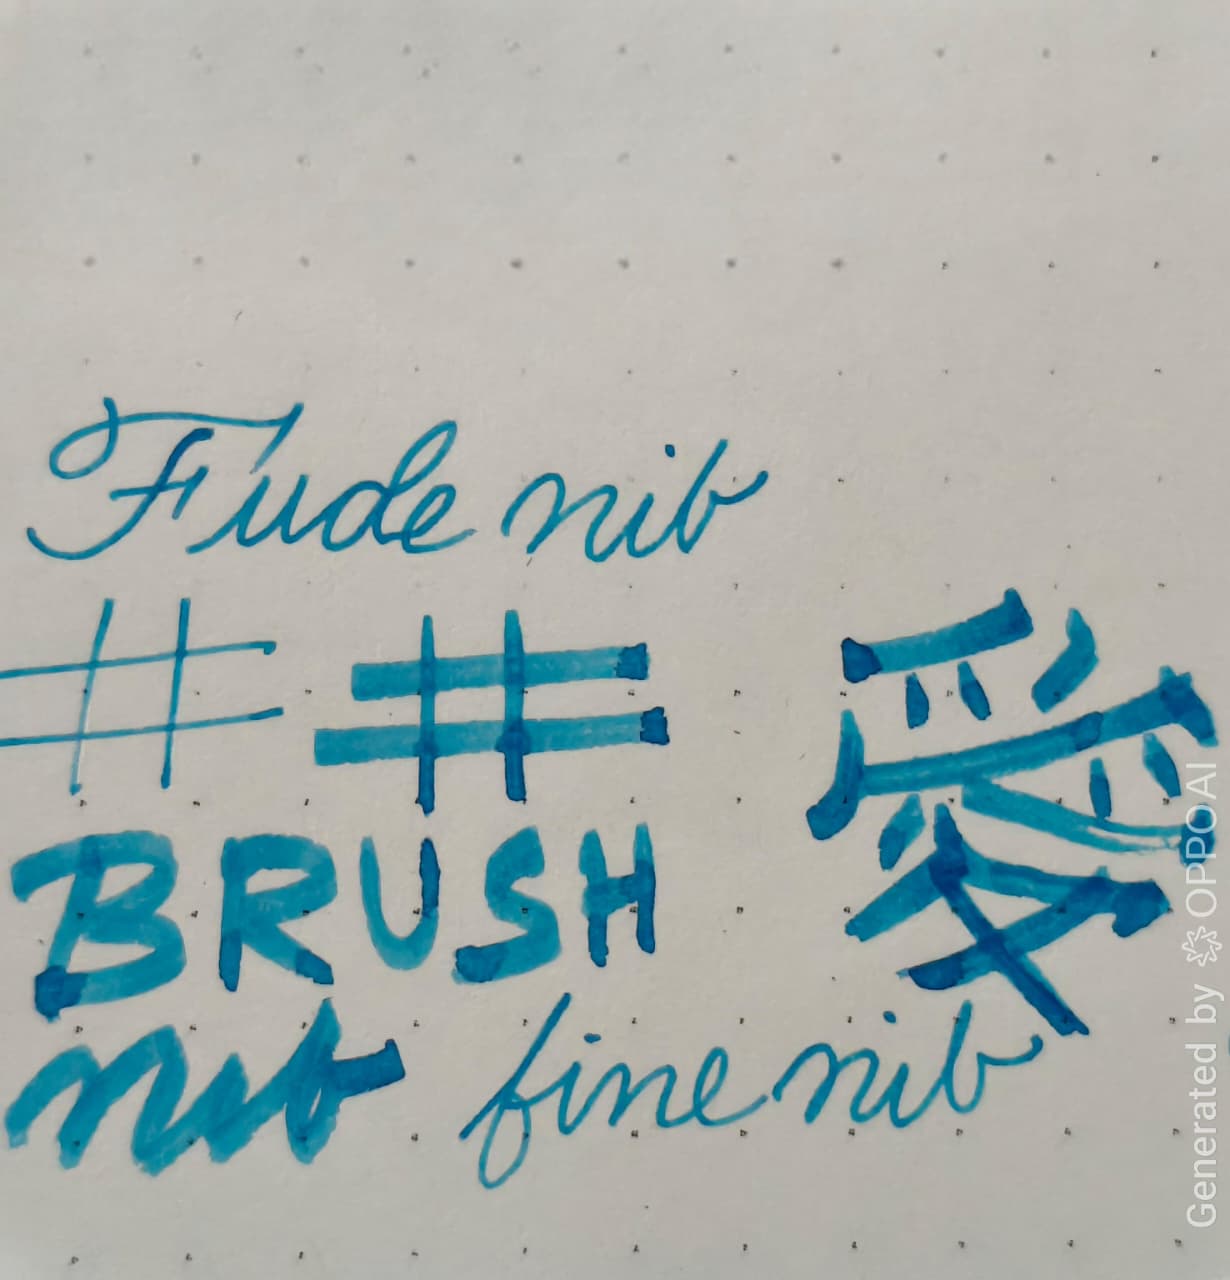 Fude nib
# # 愛
BRUSH
nib fine nib
Generated by OPPO AI